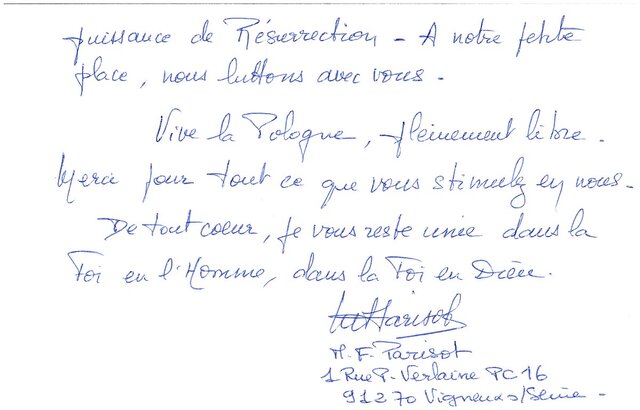 puissance de Résurrection - A notre petite
place, nous luttons avec vous -
Vive la Pologne, pleinement libre.
Merci pour tout ce que vous stimulez en nous -
De tout coeur, je vous reste unie dans la
Foi en l'Homme, dans la Foi en Dieu.
M. F. Parisot
1 Rue P. Verlaine PC 16
91270 Vigneux s/Seine -